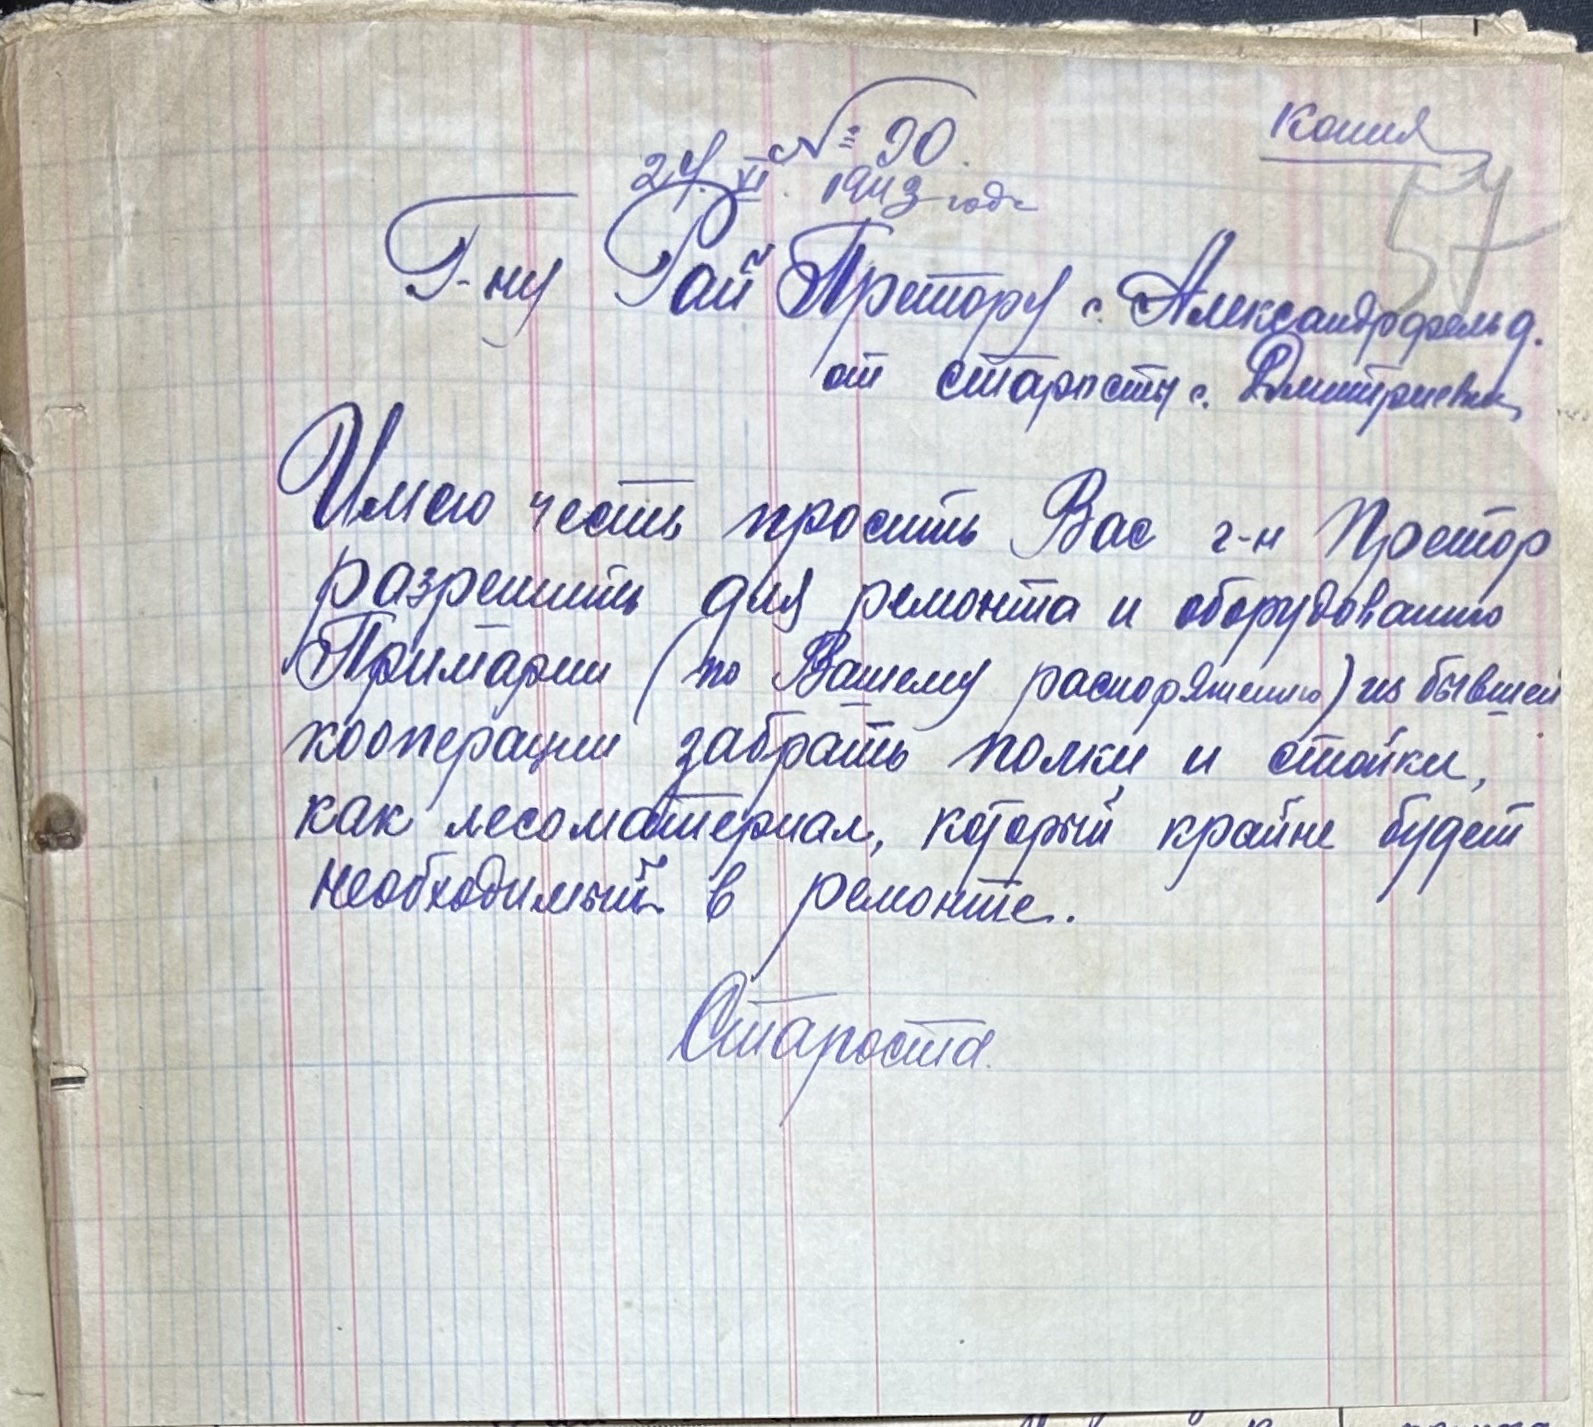 Копия
57
№ 90.
24. VI. 1943 года
Г-ну Рай Претору с. Александрфельд.
от старосты с. Дмитриевки
Имею честь просить Вас г-н Претор
разрешить для ремонта и оборудованию
Примарии (по Вашему распоряжению) из бывшей
кооперации забрать полки и стойки,
как лесоматериал, который крайне будет
необходимый в ремонте.
Староста.